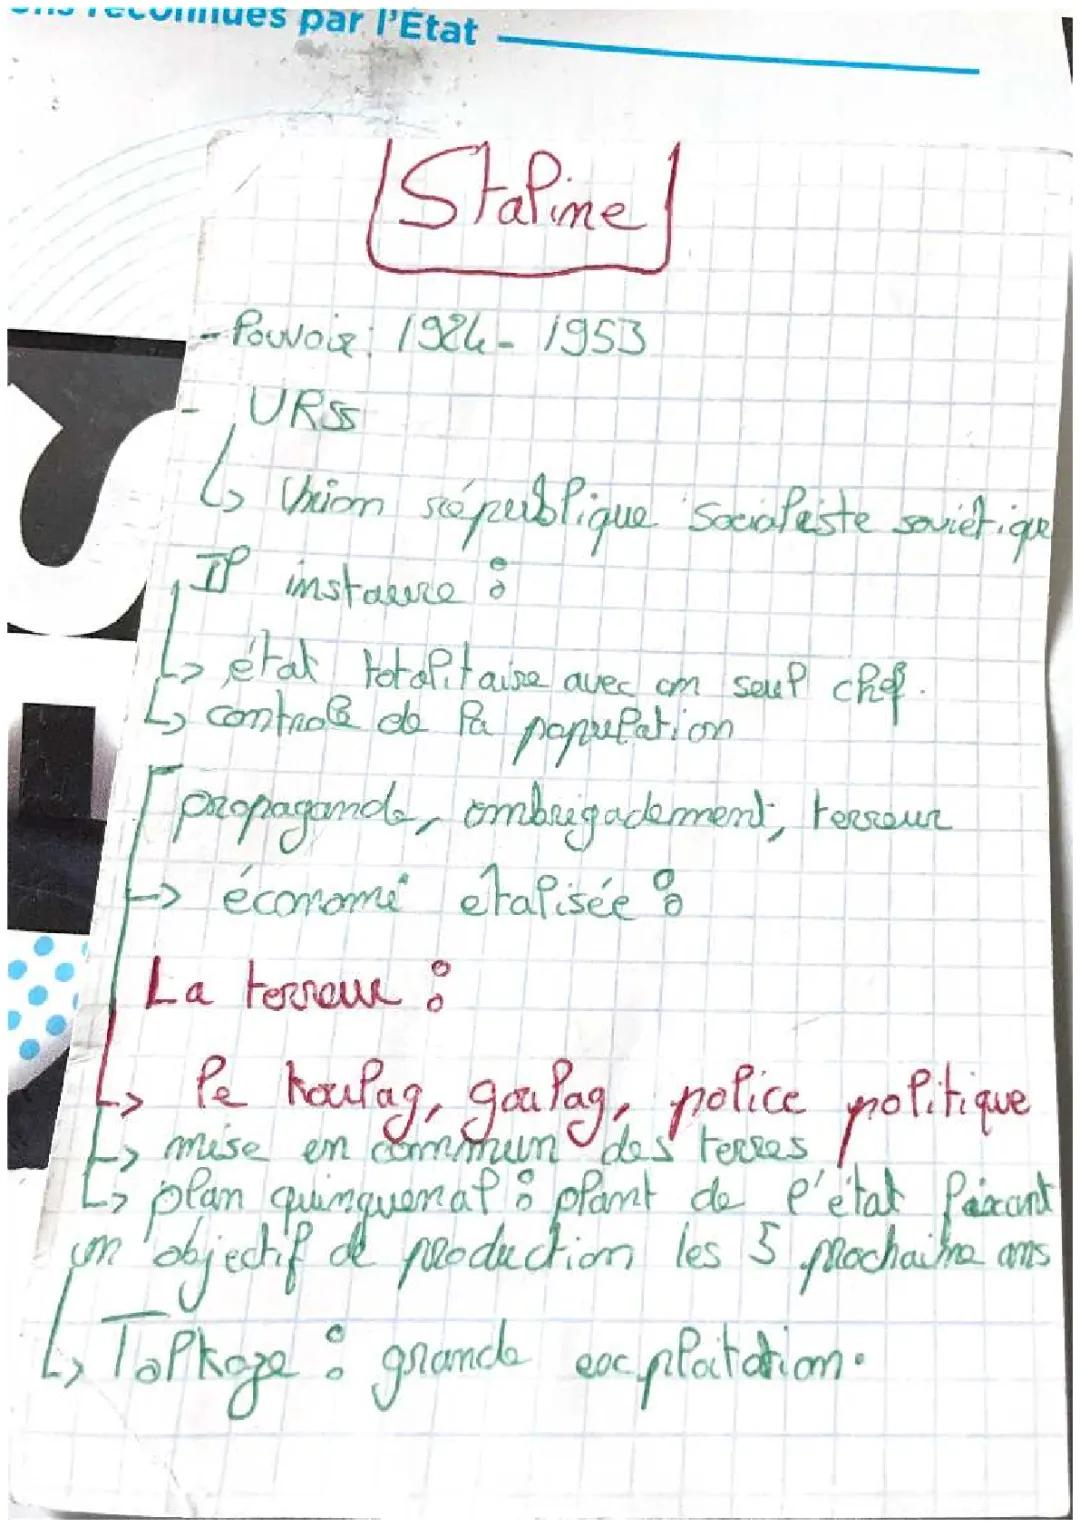 reconnues par l'Etat
Staline
- Pouvoir : 1924 - 1953
- URSS
↳ Union république socialiste soviétique
Il instaure :
↳ état totalitaire avec un seul chef.
↳ controle de la population
propagande, ombrigadement, terreur
→ économi etalisée :
La terreur :
↳ le koulag, goulag, police politique
↳ mise en commun des terres
↳ plan quinquenal : plant de l'état faixant
un objectif de production les 5 prochaine ans
↳ Tolkoze : grande excplatation.